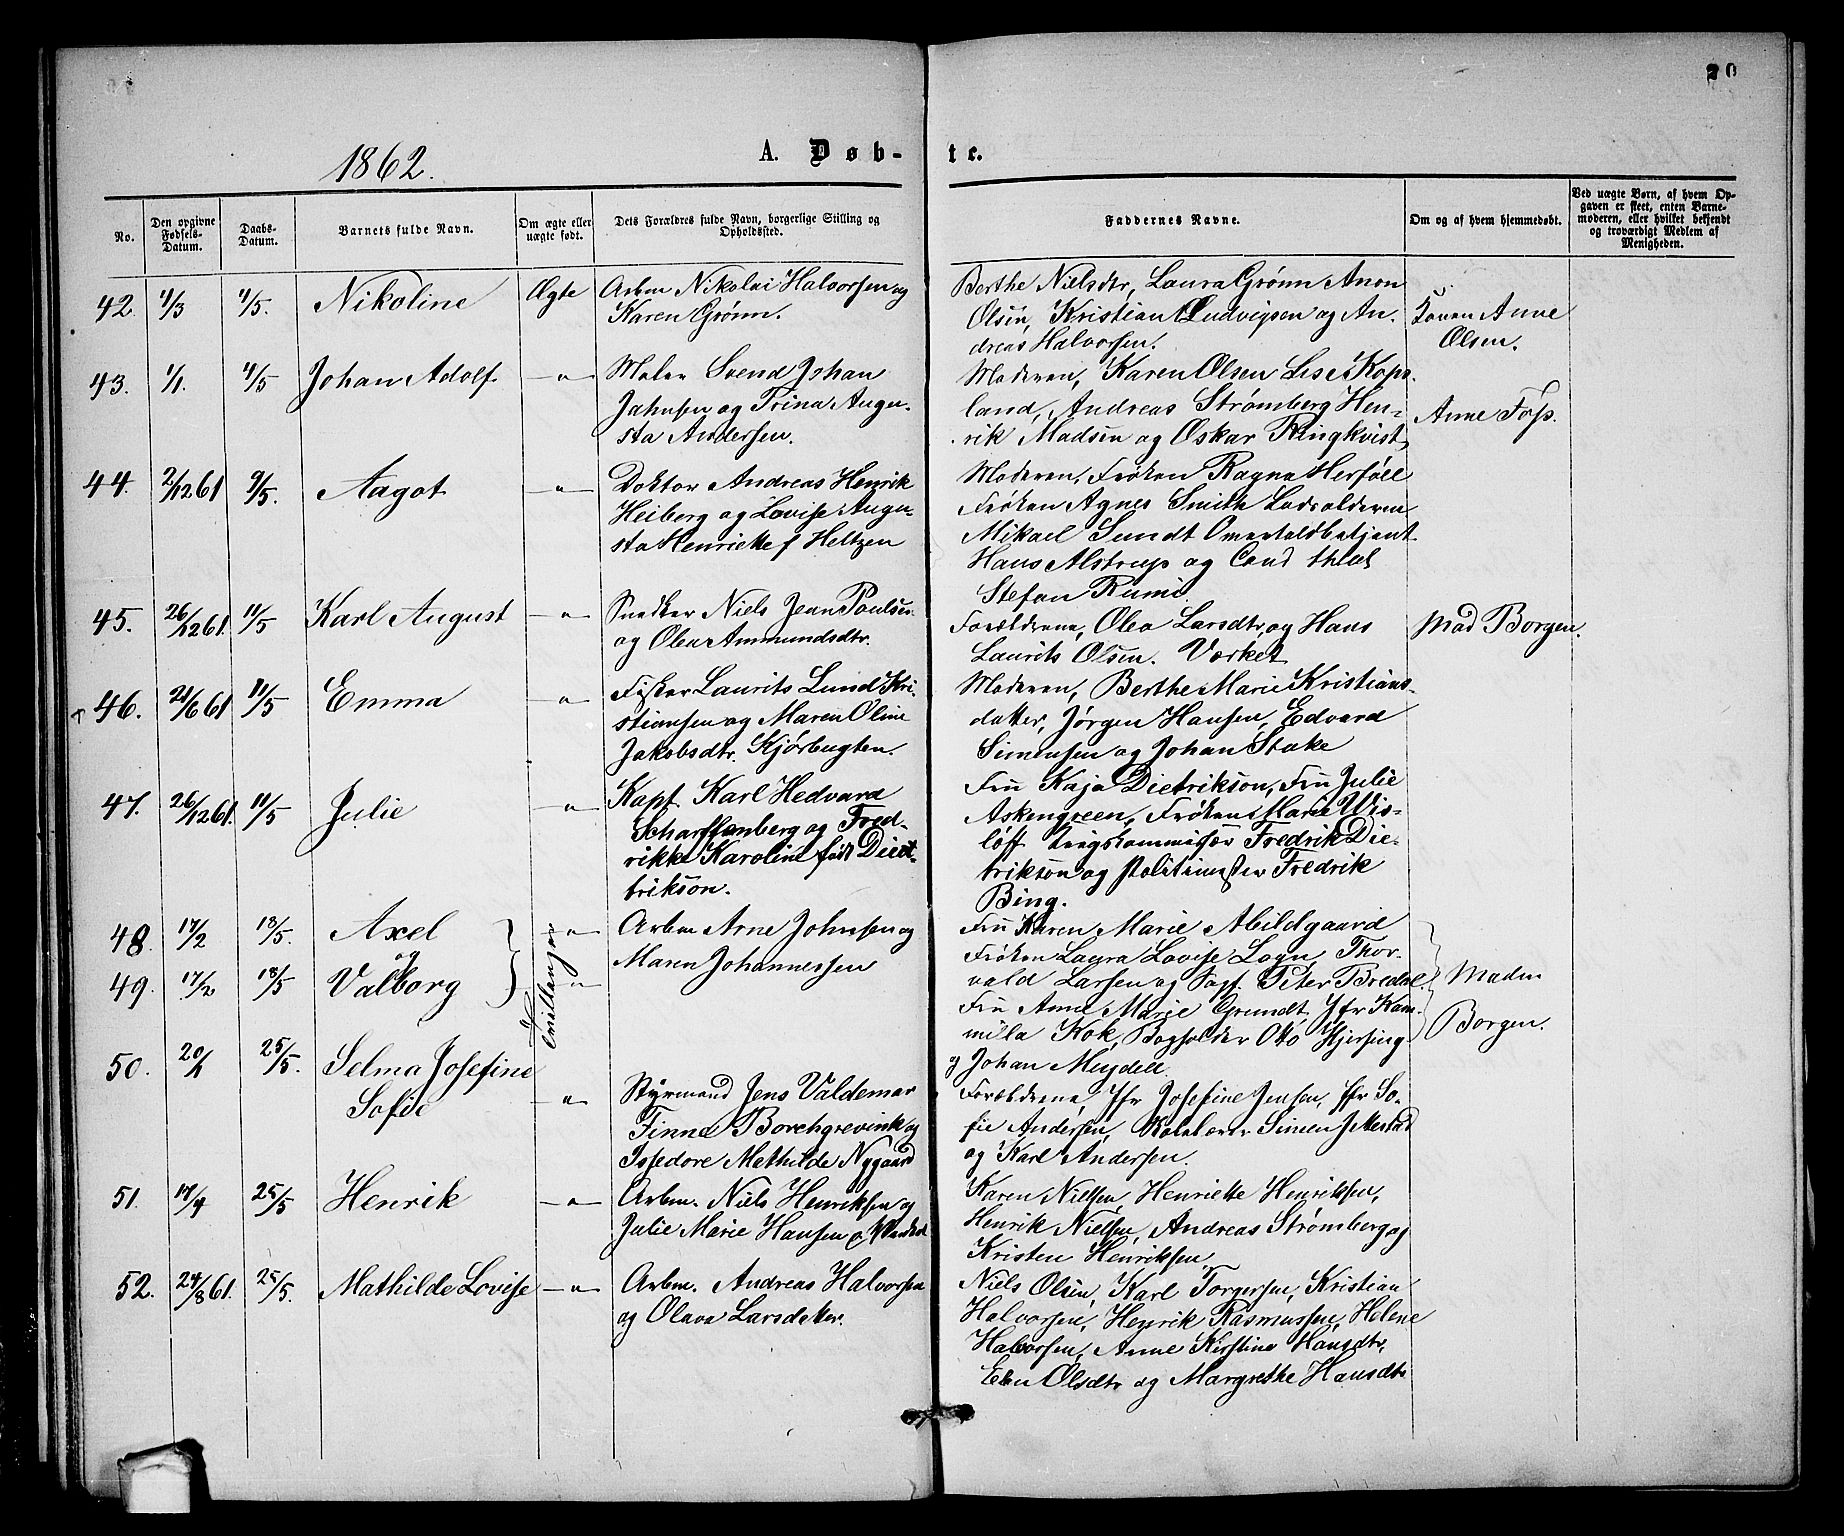 20
1862.
A. Døb-
te.
No.
Den opgivne Fødsels-Datum.
Daabs-Datum.
Barnets fulde Navn.
Om ægte eller uægte født.
Dets Forældres fulde Navn, borgerlige Stilling og Opholdssted.
Faddernes Navne.
Om og af hvem hjemmedøbt.
Ved uægte Børn, af hvem Opgaven er skeet, enten Barnemoderen, eller hvilket bekjendt og troværdigt Medlem af Menigheden.
42. 1/3 4/5. Nikoline Ægte Arbm Nikolai Halvorsen og
Karen Grønn.
Berthe Nielsdtr, Laura Grønn Anon
Olsen, Kristian Ludvigsen og An-
dreas Halvorsen.
Konen Anne
Olsen.
43. 1/1. 4/5 Johan Adolf -"- Maler Svend Johan
Jahnsen og Trina Augu-
sta Andersen.
Moderen, Karen Olsen Lise Kops-
land, Andreas Strømberg Hen-
rik Madsen og Oskar Ringkvist
Anne Foss.
44. 2/12 61 9/5. Aagot -"- Doktor Andreas Henrik
Heiberg og Lovise Augu-
sta Henriette f Heltzen
Moderen, Frøken Ragna Herføll
Frøken Agnes Smith Lodsolderm
Mikael Sundt
Hans Alstrup og Cand theol
Stefan
45. 26/12 61. 11/5 Karl August -"- Snedker Niels Jenn Paulsen
og Olea Ammundsdtr.
Forældrene, Olea Larsdtr, og Hans
Laurits Olsen. Værket
Mad Borgen.
46. 21/6 61 11/5 Emma -"- Fisker Laurits Lund Kri-
stiansen og Maren Oline
Jakobsdtr. Kjørbugten.
Moderen, Berthe Marie Kristians-
datter, Jørgen Hansen, Edvard
Simensen og Johan Stake
47. 26/12 61. 11/5 Julie -"- Kapt Karl Hedvard
Scharffenberg og Fred-
rikke Karoline født Diet-
trikson.
Fru Kaja Dietrikson, Fru Julie
Askengreen, Frøken Marie Wis-
löff Krigskommissær Fredrik Die-
trikson og Politimester Fredrik
Bing.
48. 17/2 18/5. Axel -"- Arbm Arne Johnsen og
og
Tvillinger
49. 17/2 18/5 Valborg -"- Maren Johannessen
Fru Karen Marie Abildgaard
Frøken Laura Lovise Logn, Thor-
vald Larsen og Peter Bredal.
Fru Anne Marie Grundt, Jfr Kam-
mila Kok, Bogholder Otto Hjersing
og Johan
Madm
Borgen.
50. 20/1 25/5. Selma Josefine
Sofie -"- Styrmand Jens Valdemar
Finne Borchgrevink og
Issedore Mathilde Nygaard
Forældrene, Jfr Josefine Jensen, Jfr So-
fie Andersen, Simen
og Karl Andersen.
51. 17/4 25/5 Henrik -"- Arbm. Niels Henriksen og
Julie Marie Hansen
Karen Nielsen, Henriette Henriksen,
Henrik Nielsen, Andreas Strømberg og
Kristen Henriksen
52. 24/8 61. 25/5. Mathilde Lovise -"- Arbm. Andreas Halvorsen
og Olava Larsdatter.
Niels Olsen, Karl Torgersen, Kristian
Halvorsen, Henrik Rasmussen, Helene
Halvorsen, Anne Kirstine Hansdtr,
Elen Olsdtr og Margrethe Hansdtr